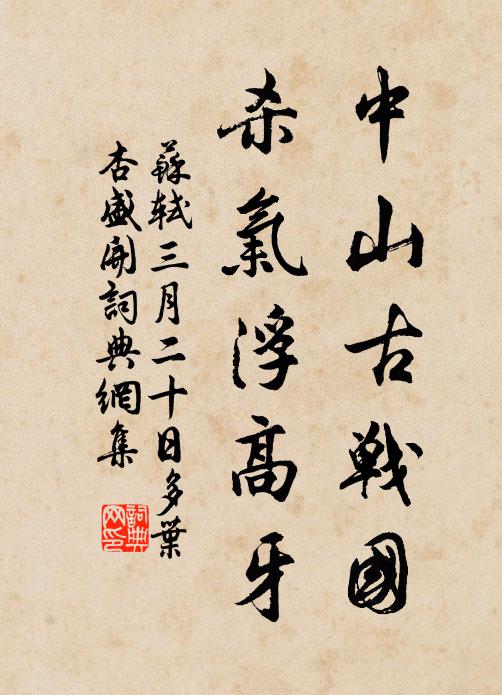 中山古戰國
杀氣浮高牙
蘇軾三月二十日多葉
杏盛開詞典網集
詞典
网印